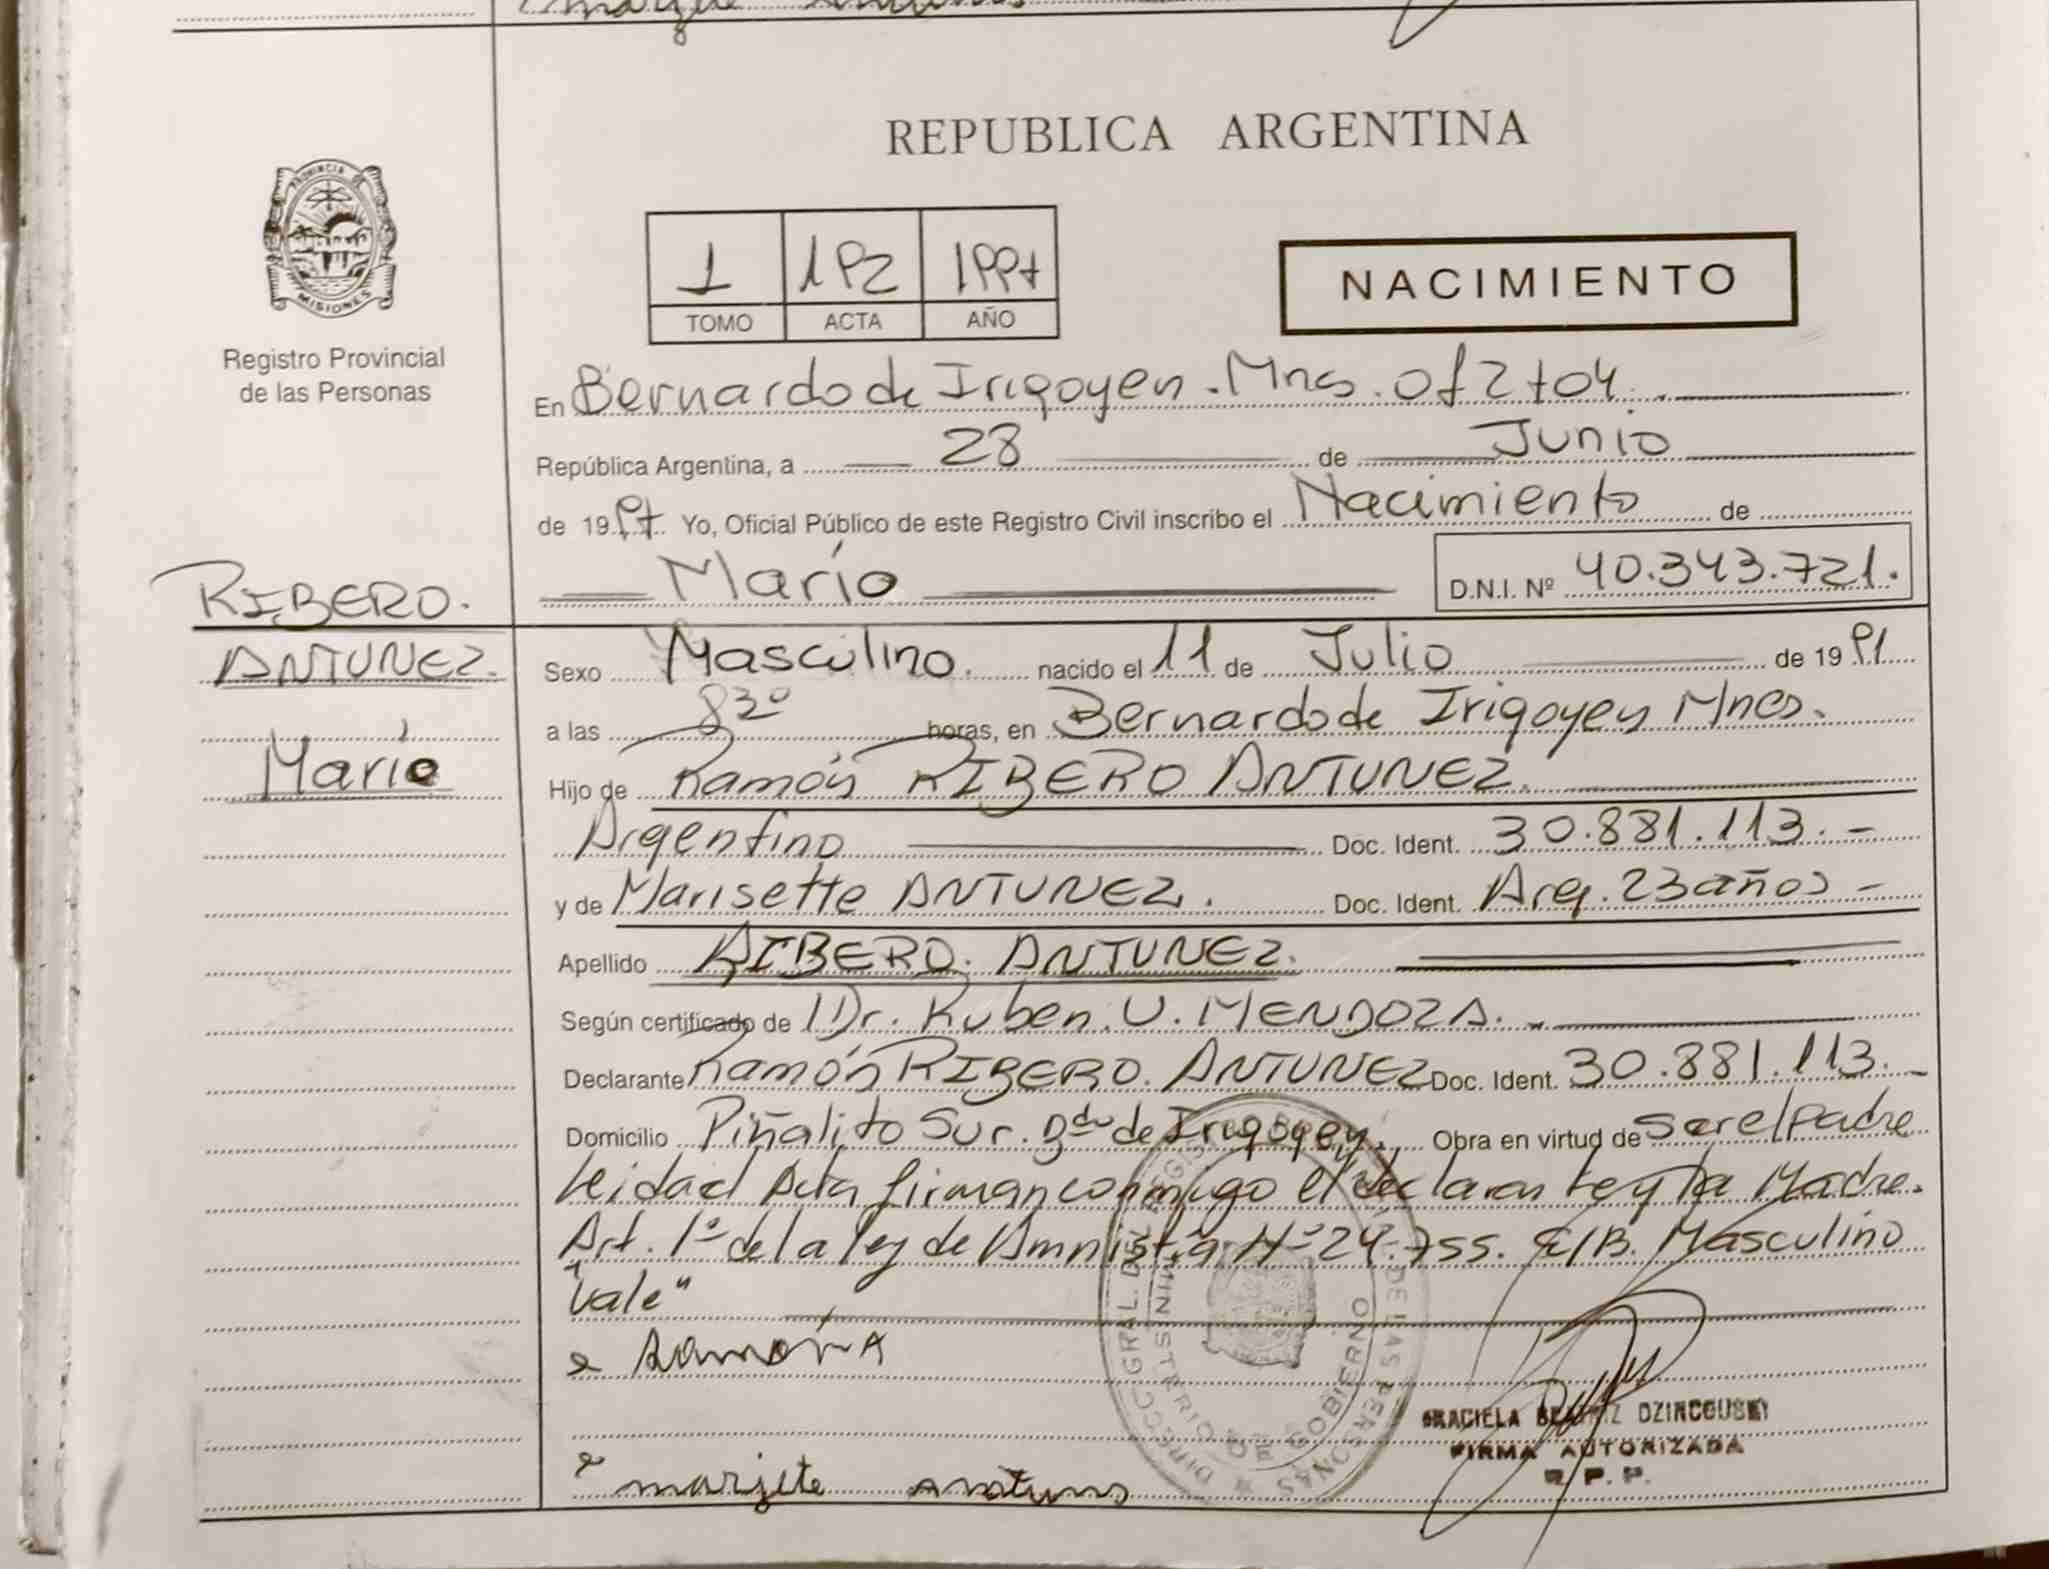 REPUBLICA ARGENTINA
PROVINCIA DE
MISIONES
Registro Provincial
de las Personas
1 192 1997
TOMO ACTA AÑO
NACIMIENTO
En Bernardo de Irigoyen. Mnes. Of 2704.
República Argentina, a 28 de Junio
de 1997. Yo, Oficial Público de este Registro Civil inscribo el Nacimiento de
Mario
D.N.I. Nº 40.343.721.
RIBERO.
ANTUNEZ.
Mario
Sexo Masculino. nacido el 11 de Julio de 1991
a las 8³⁰ horas, en Bernardo de Irigoyen Mnes.
Hijo de Ramón RIBERO ANTUNEZ.
Argentino Doc. Ident. 30.881.113.-
y de Marisette ANTUNEZ. Doc. Ident. Arg. 23 años -
Apellido RIBERO. ANTUNEZ.
Según certificado de Dr. Ruben. U. MENDOZA.
Declarante Ramón RIBERO. ANTUNEZ Doc. Ident. 30.881.113.-
Domicilio Piñalito Sur. Bdo de Irigoyen. Obra en virtud de ser el padre
leida el Acta firman conmigo el declarante y la Madre.
Art. 1º de la ley de Amnistía Nº 24.755. S/B. Masculino
"Vale"
Ramón A
marizete
DIRECC. GRAL. DEL REGISTRO DE LAS PERSONAS
MINISTERIO DE GOBIERNO
GRACIELA BEATRIZ DZINCOUSKY
FIRMA AUTORIZADA
R. P. P.